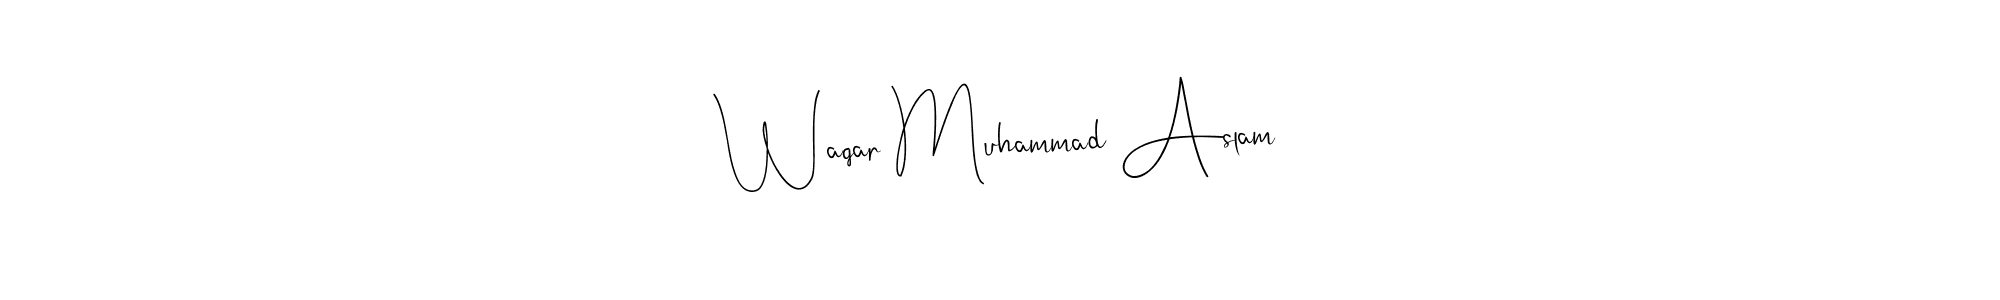 Waqar Muhammad Aslam